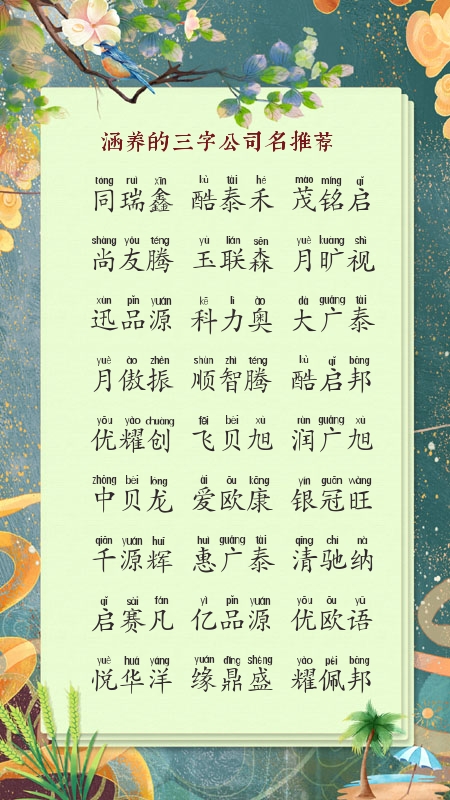 涵养的三字公司名推荐
tóng ruì xīn kù tài hé mào míng qǐ
同瑞鑫 酷泰禾 茂铭启
shàng yǒu téng yù lián sēn yuè kuàng shì
尚友腾 玉联森 月旷视
xùn pǐn yuán kē lì ào dà guǎng tài
迅品源 科力奥 大广泰
yuè ào zhèn shùn zhì téng kù qǐ bāng
月傲振 顺智腾 酷启邦
yōu yào chuàng fēi bèi xù rùn guǎng xù
优耀创 飞贝旭 润广旭
zhōng bèi lóng ài ōu kāng yín guān wàng
中贝龙 爱欧康 银冠旺
qiān yuán huī huì guǎng tài qīng chí nà
千源辉 惠广泰 清驰纳
qǐ sài fán yì pǐn yuán yōu ōu yǔ
启赛凡 亿品源 优欧语
yuè huá yáng yuán dǐng shèng yào pèi bāng
悦华洋 缘鼎盛 耀佩邦